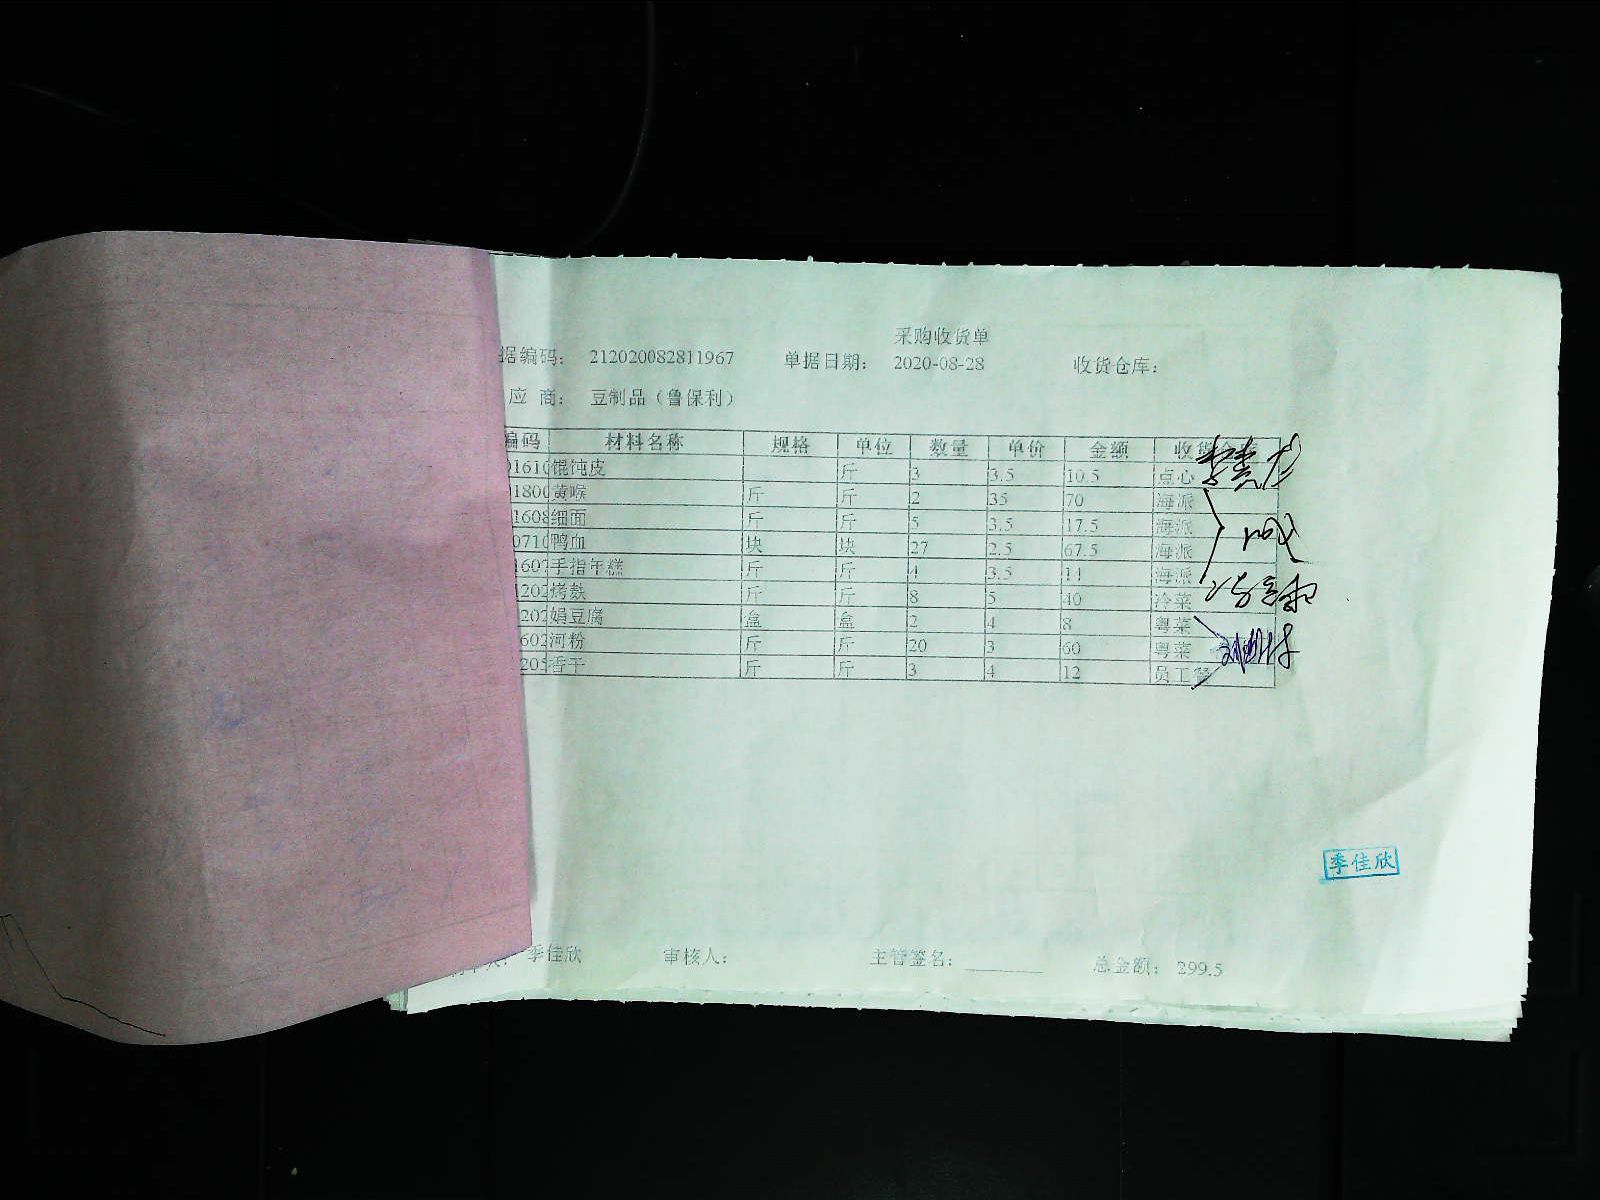 采购收货单
据编码： 212020082811967 单据日期： 2020-08-28 收货仓库：
应 商： 豆制品（鲁保利）
编码 材料名称 规格 单位 数量 单价 金额 收货
01610 馄饨皮 斤 3 3.5 10.5 点心
01800 黄喉 斤 斤 2 35 70 海派
1608 细面 斤 斤 5 3.5 17.5 海派
0710 鸭血 块 块 27 2.5 67.5 海派
1607 手指年糕 斤 斤 4 3.5 14 海派
1202 烤麸 斤 斤 8 5 40 冷菜
202 娟豆腐 盒 盒 2 4 8 粤菜
602 河粉 斤 斤 20 3 60 粤菜
205 香干 斤 斤 3 4 12 员工餐
季佳欣
季佳欣 审核人： 主管签名： 总金额： 299.5